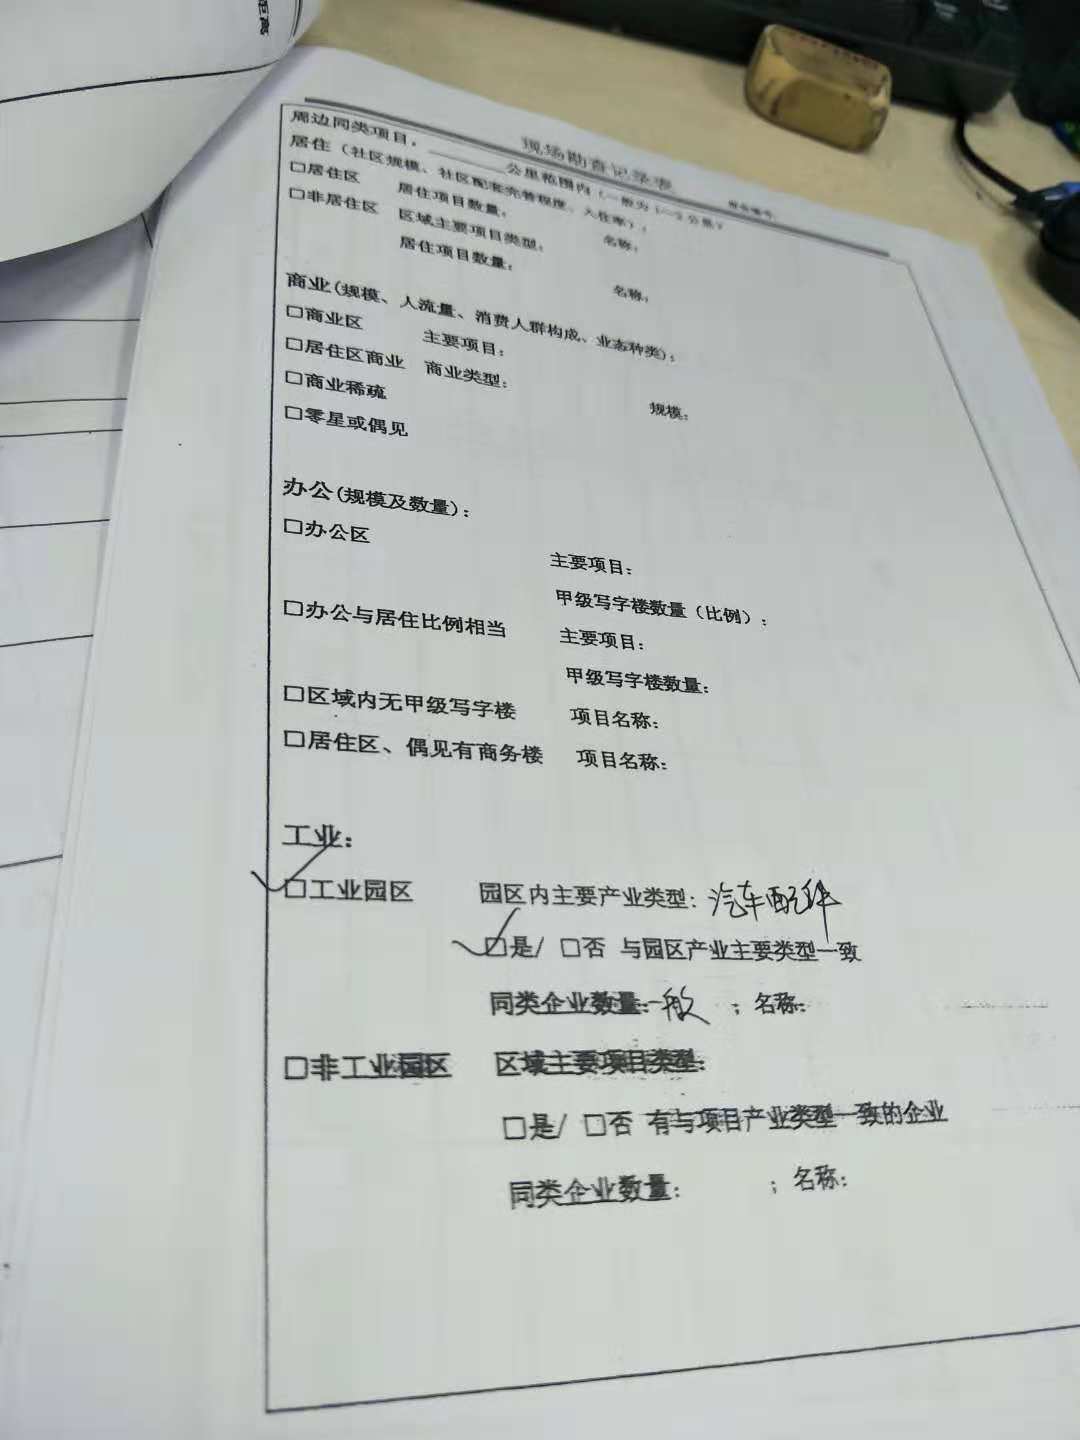 距离
现场勘查记录表
报告编号:
周边同类项目, ______公里范围内(一般为1—2公里)
居住(社区规模、社区配套完善程度、入住率):
□居住区 居住项目数量: 名称:
□非居住区 区域主要项目类型:
居住项目数量: 名称:
商业(规模、人流量、消费人群构成、业态种类):
□商业区 主要项目:
□居住区商业 商业类型: 规模:
□商业稀疏
□零星或偶见
办公(规模及数量):
□办公区 主要项目:
甲级写字楼数量(比例):
□办公与居住比例相当 主要项目:
甲级写字楼数量:
□区域内无甲级写字楼 项目名称:
□居住区、偶见有商务楼 项目名称:
工业:
☑工业园区 园区内主要产业类型:汽车配件
☑是/ □否 与园区产业主要类型一致
同类企业数量:一般 ;名称:
□非工业园区 区域主要项目类型:
□是/ □否 有与项目产业类型一致的企业
同类企业数量: ;名称: